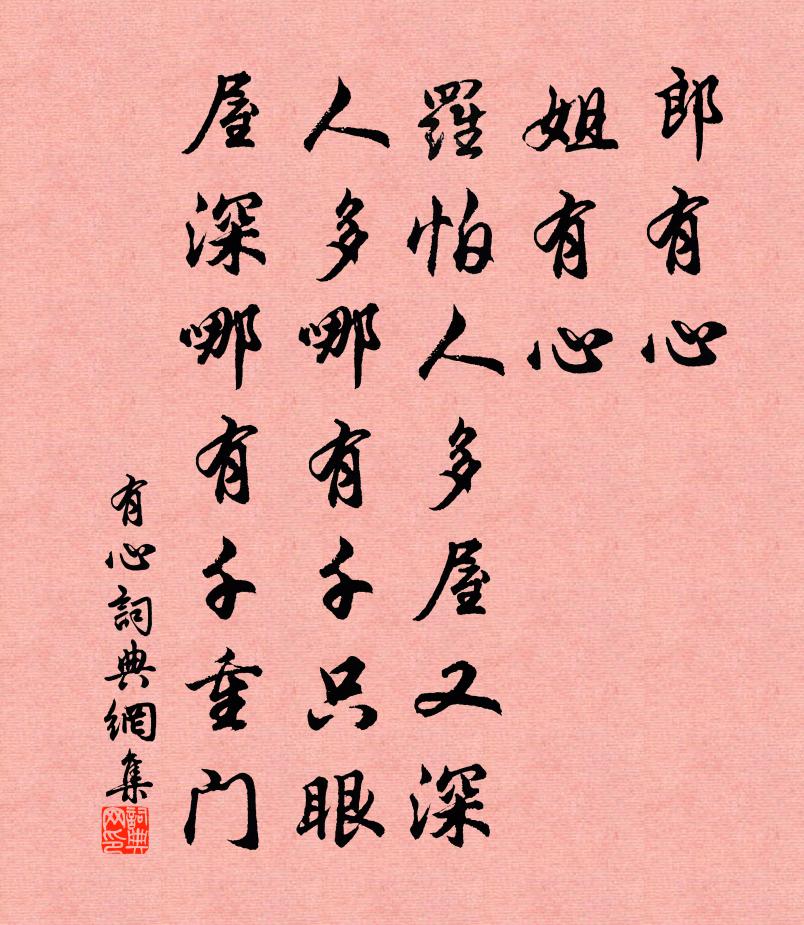 郎有心
姐有心
羅怕人多屋又深
人多哪有千只眼
屋深哪有千重門
有心詞典網集
詞典网印